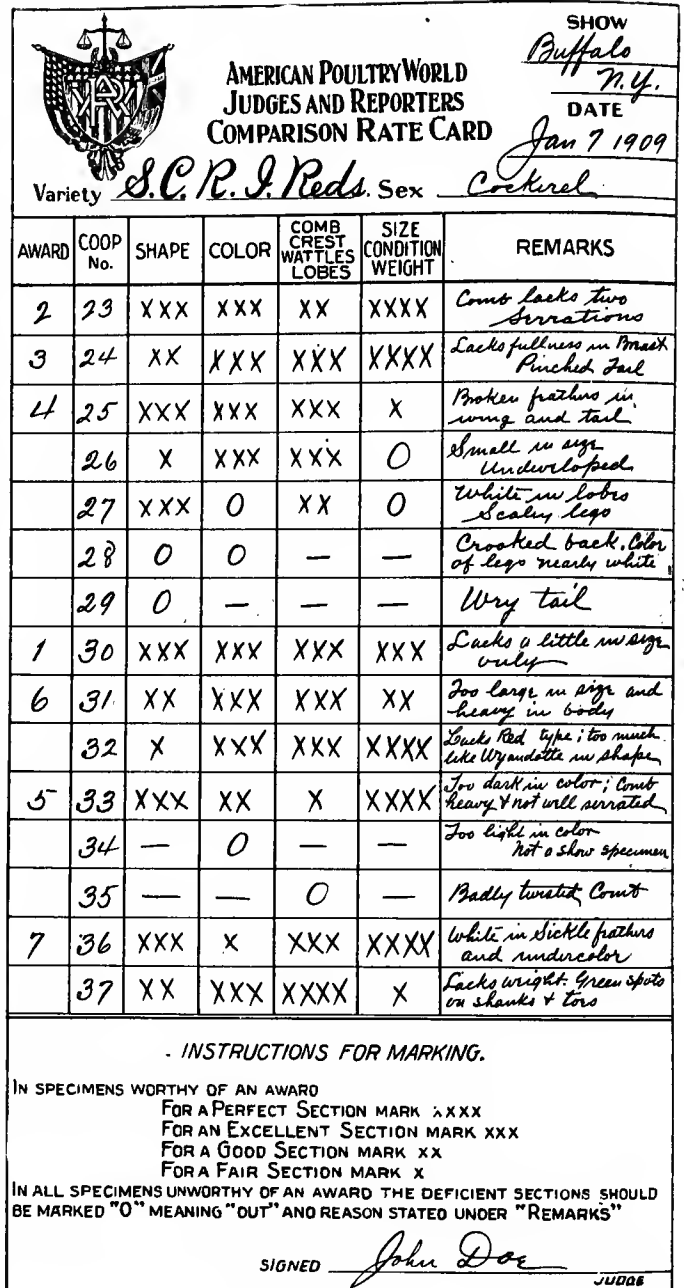 SHOW
Buffalo
N.Y.
DATE
Jan 7 1909
AMERICAN POULTRY WORLD
JUDGES AND REPORTERS
COMPARISON RATE CARD
Variety S.C. R. I. Reds. Sex Cockerel
AWARD COOP No. SHAPE COLOR COMB CREST WATTLES LOBES SIZE CONDITION WEIGHT REMARKS
2 23 XXX XXX XX XXXX Comb lacks two
Serrations
3 24 XX XXX XXX XXXX Lacks fullness in Breast
Pinched Tail
4 25 XXX XXX XXX X Broken feathers in
wing and tail
26 X XXX XXX O Small in size
Undeveloped
27 XXX O XX O White in lobes
Scaley legs
28 O O — — Crooked back. Color
of legs nearly white
29 O — — — Wry tail
1 30 XXX XXX XXX XXX Lacks a little in size
only
6 31 XX XXX XXX XX Too large in size and
heavy in body
32 X XXX XXX XXXX Lacks Red type; too much
like Wyandotte in shape
5 33 XXX XX X XXXX Too dark in color; Comb
heavy & not well serrated
34 — O — — Too light in color
Not a show specimen
35 — — O — Badly twisted Comb
7 36 XXX X XXX XXXX White in Sickle feathers
and undercolor
37 XX XXX XXXX X Lacks weight. Green spots
on shanks & toes
INSTRUCTIONS FOR MARKING.
IN SPECIMENS WORTHY OF AN AWARD
FOR A PERFECT SECTION MARK XXXX
FOR AN EXCELLENT SECTION MARK XXX
FOR A GOOD SECTION MARK XX
FOR A FAIR SECTION MARK X
IN ALL SPECIMENS UNWORTHY OF AN AWARD THE DEFICIENT SECTIONS SHOULD
BE MARKED "O" MEANING "OUT" AND REASON STATED UNDER "REMARKS"
SIGNED John Doe
JUDGE